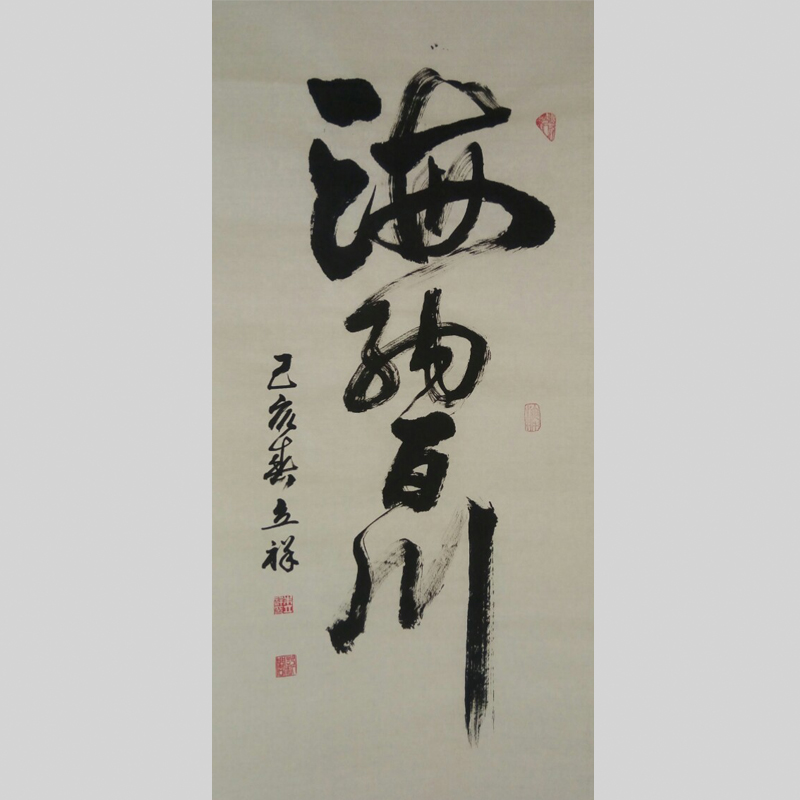 海纳百川
己亥春立祥